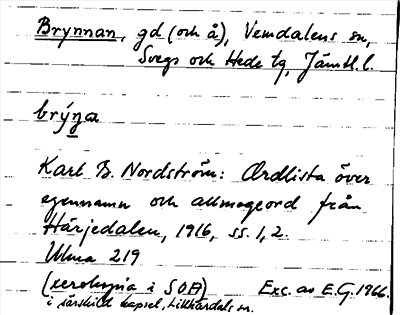 Brynnan, gd (och å), Vemdalens sn,
Svegs och Hede tg, Jämtl. l.
brýṉa
Karl B. Nordström: Ordlista över
egennamn och allmogeord från
Härjedalen, 1916, ss. 1, 2.
Ulma 219
(xerokopia i SOA) Exc. av E.G. 1966.
i särskild kapsel, Lillhärdals sn.